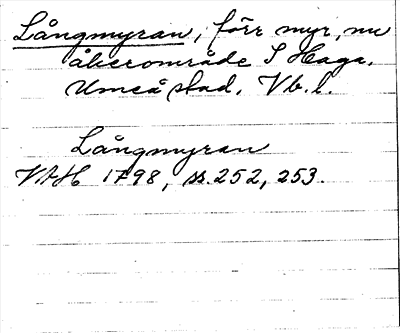 Långmyran, förr myr, nu
åkerområde S Haga,
Umeå stad, Vb. l.
Långmyran
VAH 1798, ss. 252, 253.